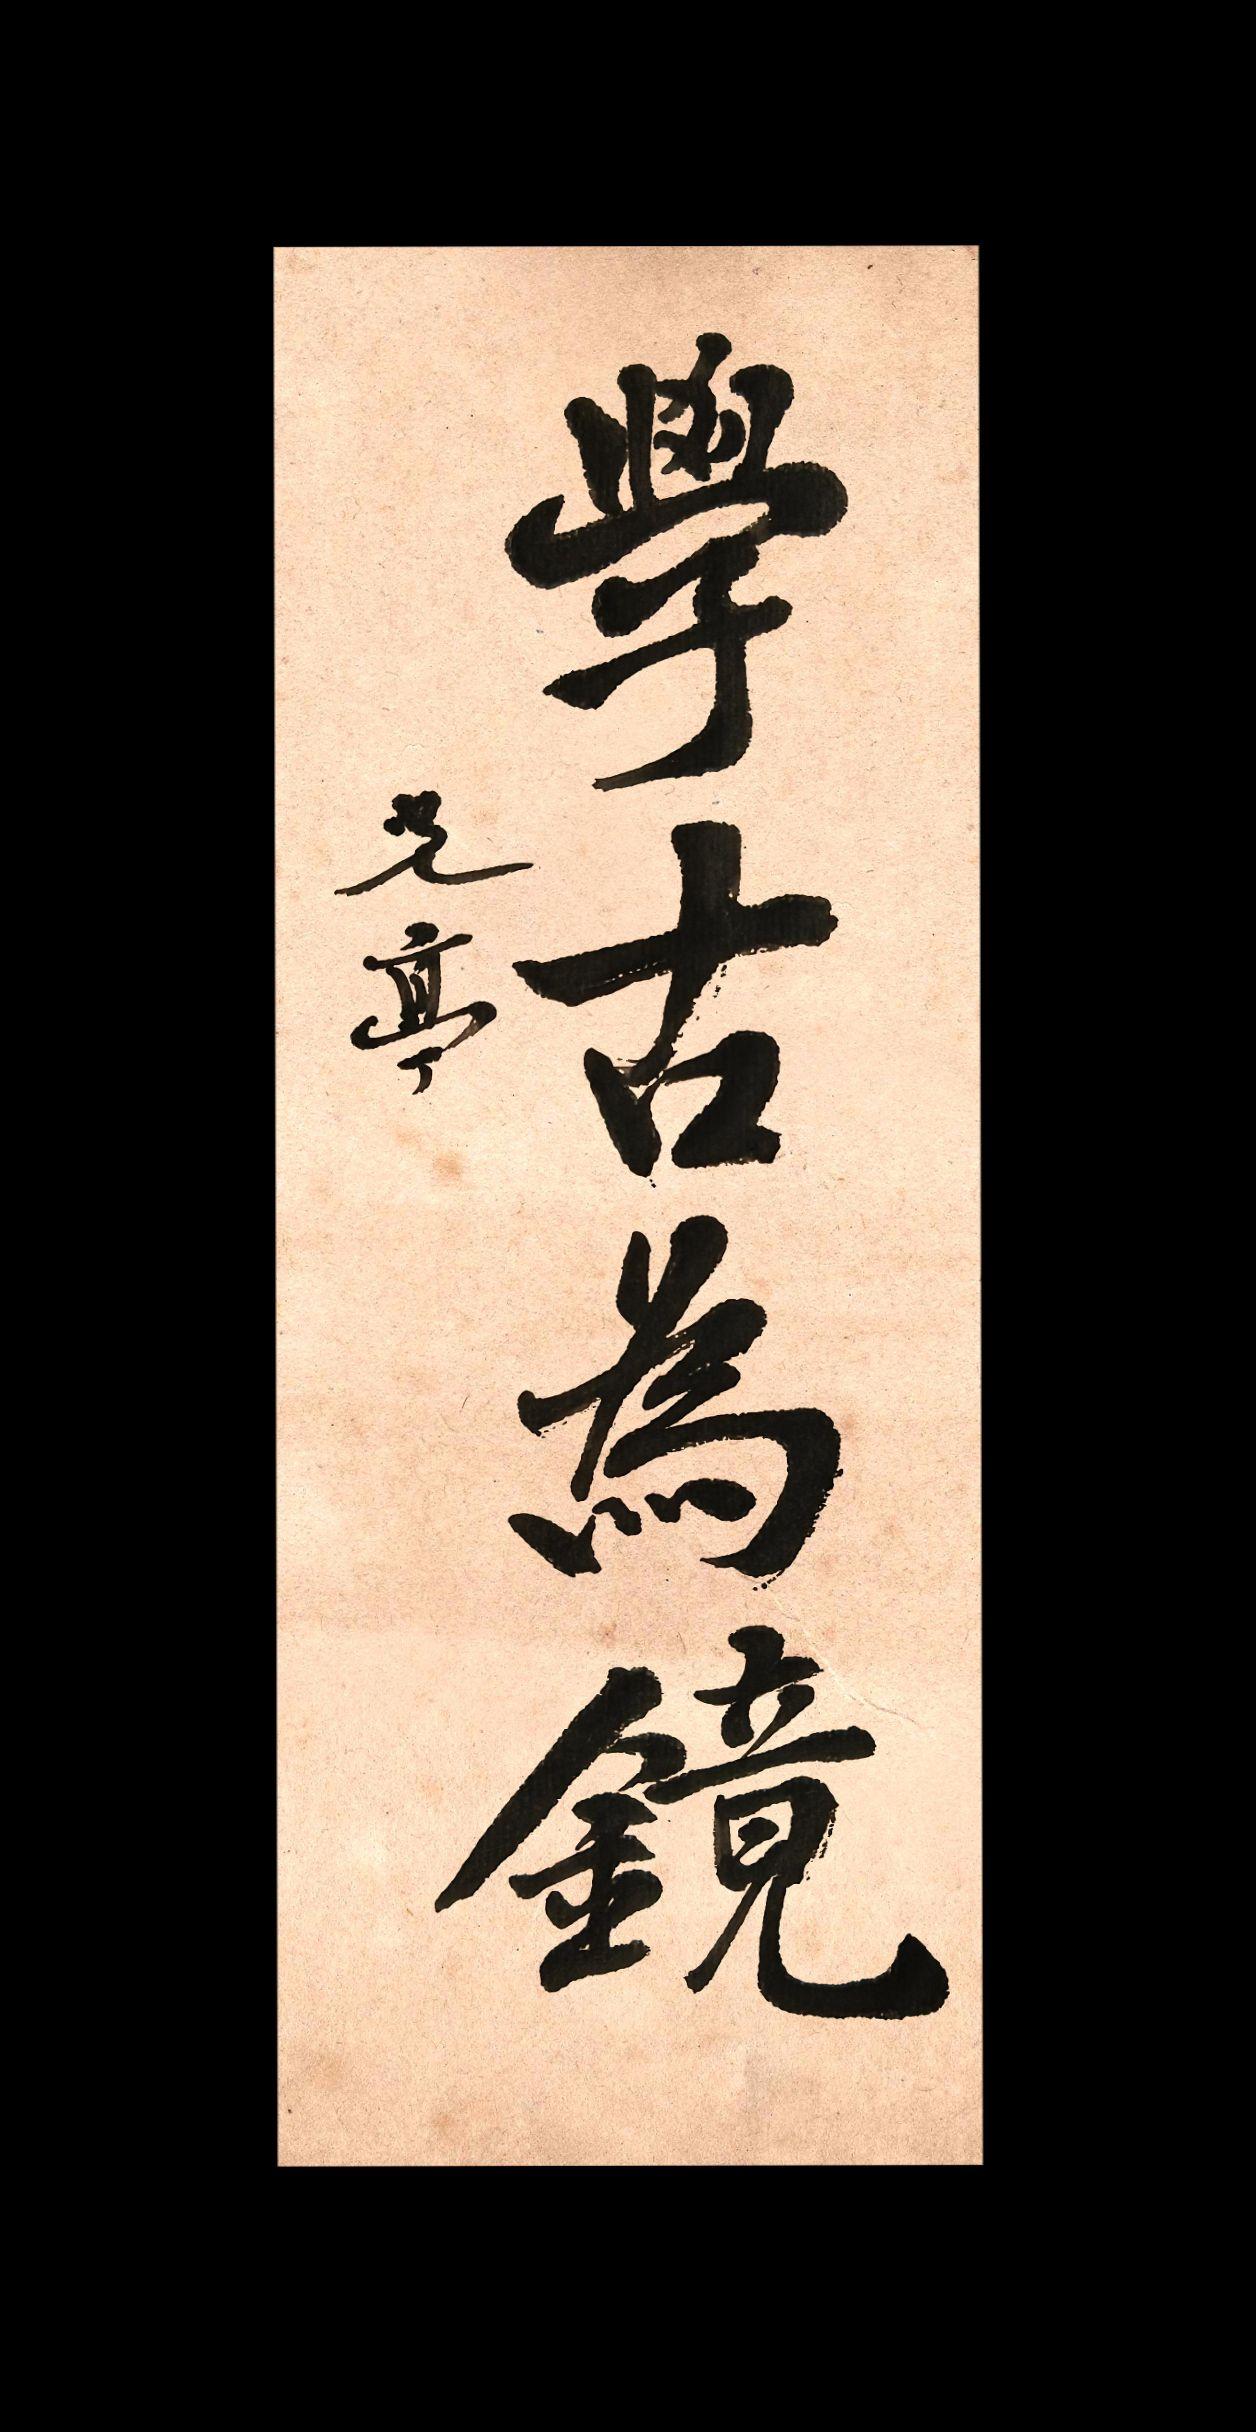 學古為鏡
亭